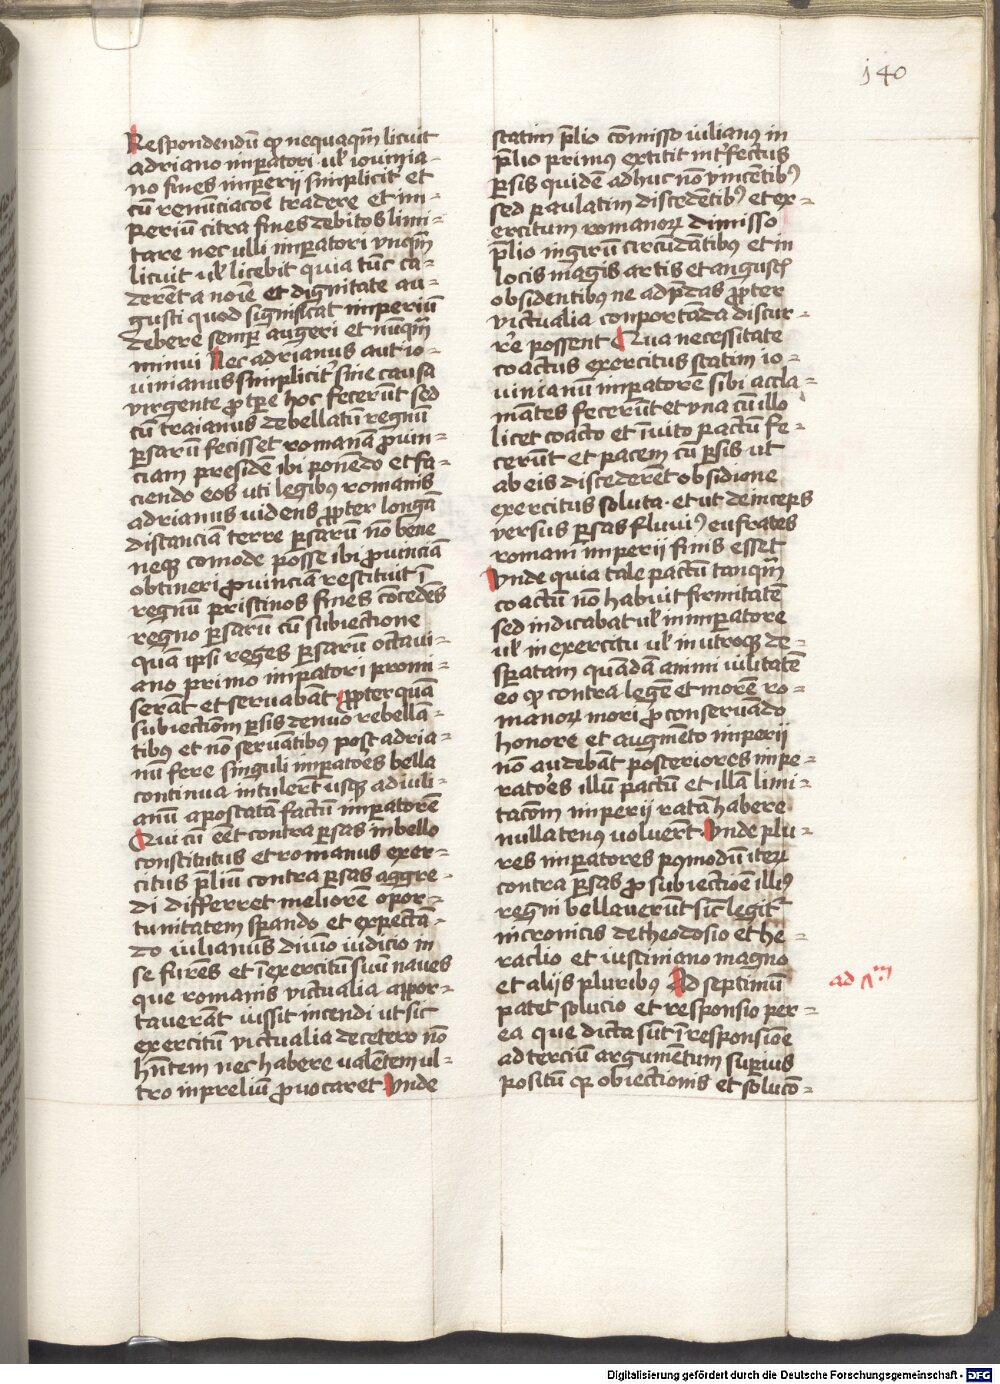 140
Respondendū ꝙ nequaqm̄ licuit
adriano imperatori ul̄ iouinia-
no fines imperii simpliciť et
cū renūciacōē tradere et im-
periū citra fines debitos limi-
tare nec ulli imperatori ynqm̄
licuit ul̄ licebit quia tūc ca-
derēt a noīe et dignitate au-
gusti quod significat imperiū
debere semꝑ augeri et nūqm̄
minui Nec adrianus aut io-
uinianus simpliciť sine causa
vrgente ꝓ tꝑe hoc fecerūt sed
cū traianus debellatū regnū
ꝑsarū fecisset romanā ꝓuin-
ciam preside ibi ponēdo et fa-
ciendo eos uti legibꝰ romanis
adrianus uidens ꝓpter longā
distanciā terre ꝑsarū nō bene
neqꝫ comode posse ibi ꝓuinciā
obtineri ꝓuinciā restituit ī
regnū pristinos fines cōcedēs
regno ꝑsarū cū subiectione
quā ipsi reges ꝑsarū octaui-
ano primo imperatori promi-
serāt et seruabāt ꝓpter quā
subiectiōm ꝑsis denuo rebellā-
tibꝰ et nō seruātibꝰ post adria-
nū fere singuli imperatoēs bella
continua intulerūt usqꝫ ad iuli-
anū apostatā factū imperatorē
Qui cū eēt contra ꝑsas in bello
constitutus et romanus exer-
citus p̄liū contra ꝑsas aggre-
di differret meliorē opor-
tunitatem sꝑando et expectā-
do iulianus diuīo iudicio in
se furēs et ī exercitū suū naues
que romanis victualia appor-
tauerāt iussit incendi ut sic
exercitū victualia de cetero nō
hn̄tem nec habere ualētem ul-
tro in preliū ꝓuocaret Vnde
statim p̄lio cōmisso iulianus in
p̄lio primus extitit inťfectus
ꝑsis quidē adhuc nō vincētibꝰ
sed paulatim discedētibꝰ et ex-
ercitum romanoꝝ dimisso
p̄lio in girū circūdātibus et in
locis magis artis et angustꝭ
obsidentibus ne ad p̄das ꝓpter
victualia conportāda discur-
rēe possent Qua necessitate
coactus exercitus statim io-
uinianū imperatorē sibi accla-
mātes fecerūt et vna cū illo
licet coacto et īuito pactū fe-
cerūt et pacem cū ꝑsis ut
ab eis discederēt obsidione
exercitus soluta · et ut deinceps
versus ꝑsas fluuiꝰ eufrates
romani imperii finis esset
Vnde quia tale pactū tanqm̄
coactū nō habuit firmitatē
sed indicabat ul̄ in imperatore
ul̄ in exercitu ul̄ in utroqꝫ de-
sꝑatam quādā animi uilitatē
eo ꝙ contra legē et morē ro-
manoꝝ mori ꝓ conseruādo
honore et augmēto imperii
nō audebāt posteriores impe-
ratoēs illū pactū et illā limi-
tacōm imperii ratā habere
nullatenꝰ uoluerūt Vnde plu-
res imperatores pꝰmodū iteꝝ
contra ꝑsas ꝓ subiectiōe illiꝰ
regni bellauerūt sic legiť
in cronicis de theodosio et he-
raclio et iustiniano magno
et aliis pluribꝰ Ad septimū
patet solucio et responsio per
ea que dicta sūt ī responsiōe
ad terciū argumētum suꝑius
positū ꝙ obiectionis et solucō-